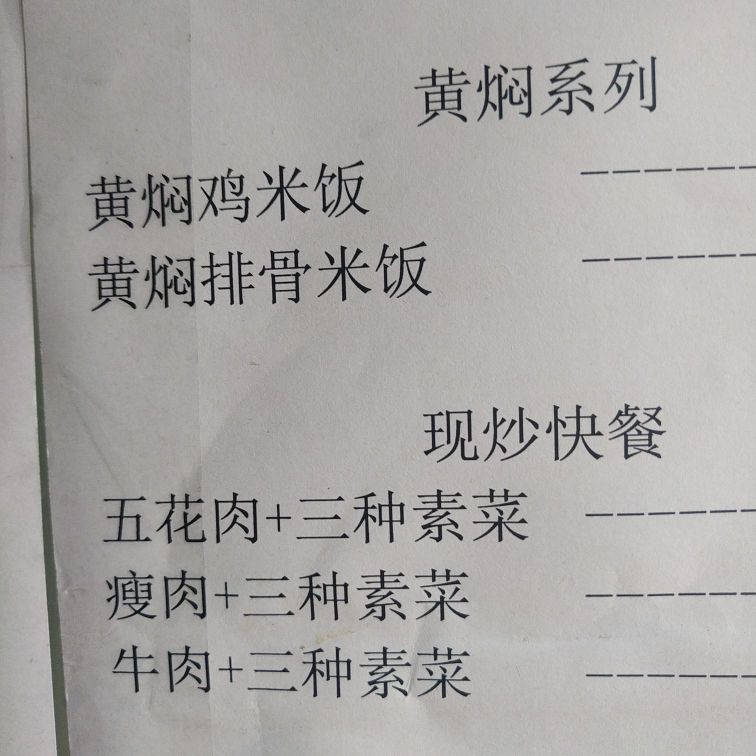 黄焖系列
黄焖鸡米饭 ------
黄焖排骨米饭 ------
现炒快餐
五花肉+三种素菜 ------
瘦肉+三种素菜 ------
牛肉+三种素菜 ------